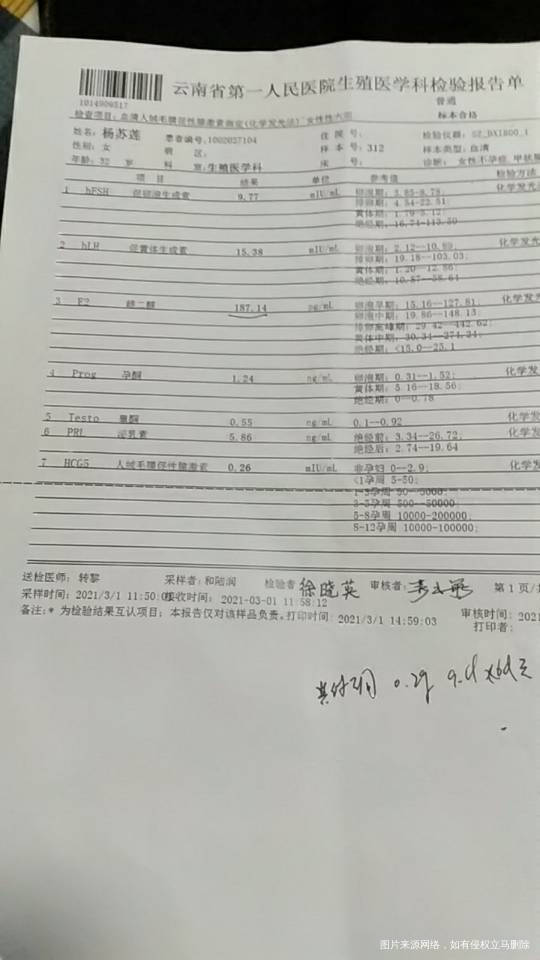 云南省第一人民医院生殖医学科检验报告单
1014909517
普通
检查项目：血清人绒毛膜促性腺激素测定(化学发光法) 女性性六项 标本合格
姓名：杨苏莲 患者编号：1002027104 住院号： 检验仪器：SZ_DXI800_1
性别：女 病区： 样本号：312 样本类型：血清
年龄：32 岁 科室：生殖医学科 床号： 诊断：女性不孕症，甲状腺
项目 结果 单位 参考值 检验方法
1 hFSH 促卵泡生成素 9.77 mIU/mL 卵泡期：3.85--8.78； 化学发光
排卵期：4.54--22.51；
黄体期：1.79--5.12；
绝经期：16.74--113.59
2 hLH 促黄体生成素 15.38 mIU/mL 卵泡期：2.12--10.89； 化学发光
排卵期：19.18--103.03；
黄体期：1.20--12.86；
绝经期：10.87--58.64
3 E2 雌二醇 187.14 pg/mL 卵泡早期：15.16--127.81； 化学发
卵泡中期：19.86--148.13；
排卵高峰期：29.42--442.62；
黄体中期：30.34--274.24；
绝经期：<15.0--25.1
4 Prog 孕酮 1.24 ng/mL 卵泡期：0.31--1.52； 化学发
黄体期：5.16--18.56；
绝经期：0--0.78
5 Testo 睾酮 0.55 ng/mL 0.1--0.92 化学发
6 PRL 泌乳素 5.86 ng/mL 绝经前：3.34--26.72； 化学发
绝经后：2.74--19.64
7 HCG5 人绒毛膜促性腺激素 0.26 mIU/mL 非孕妇 0--2.9； 化学发
<1孕周 5-50；
8-12孕周 10000-100000；
5-8孕周 10000-200000，
送检医师：转黎 采样者：和陆润 检验者：徐晓英 审核者： 第 1 页/
采样时间：2021/3/1 11:50:0 接收时间：2021-03-01 11:58:12 审核时间：2021
备注：* 为检验结果互认项目；本报告仅对该样品负责。打印时间：2021/3/1 14:59:03 打印者：
0.2g
图片来源网络，如有侵权立马删除